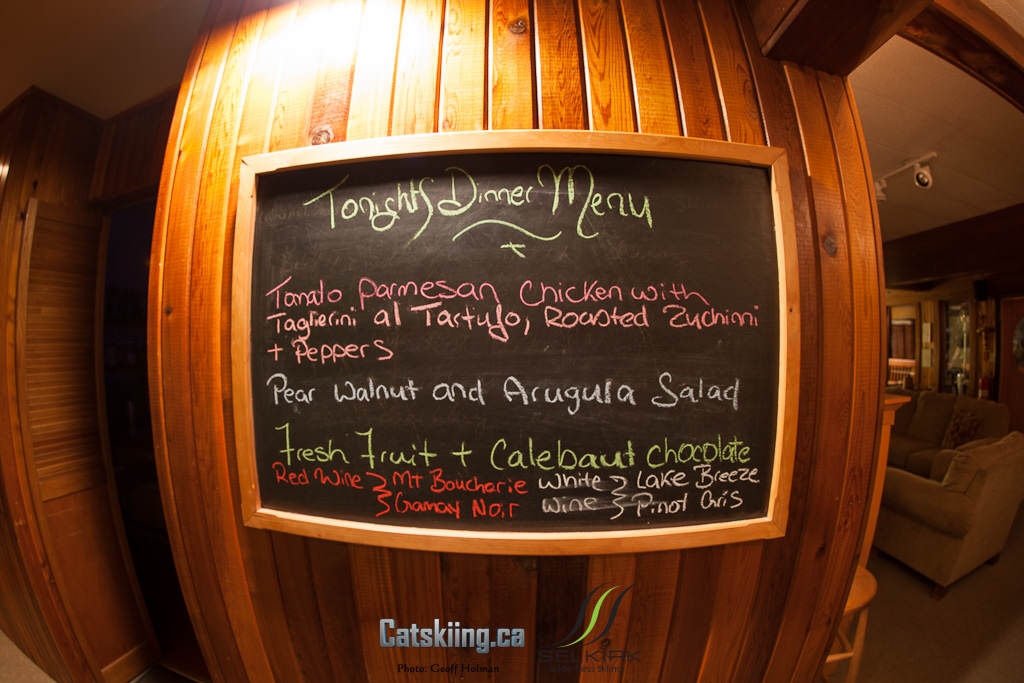 Tonights Dinner Menu
Tomato parmesan Chicken with
Taglierini al Tartufo, Roasted Zuchinni
+ Peppers
Pear Walnut and Arugula Salad
Fresh Fruit + Calebaut chocolate
Red Wine } Mt Boucharie White } Lake Breeze
} Gamay Noir Wine } Pinot Gris
Catskiing.ca
SELKIRK
Photo: Geoff Holman